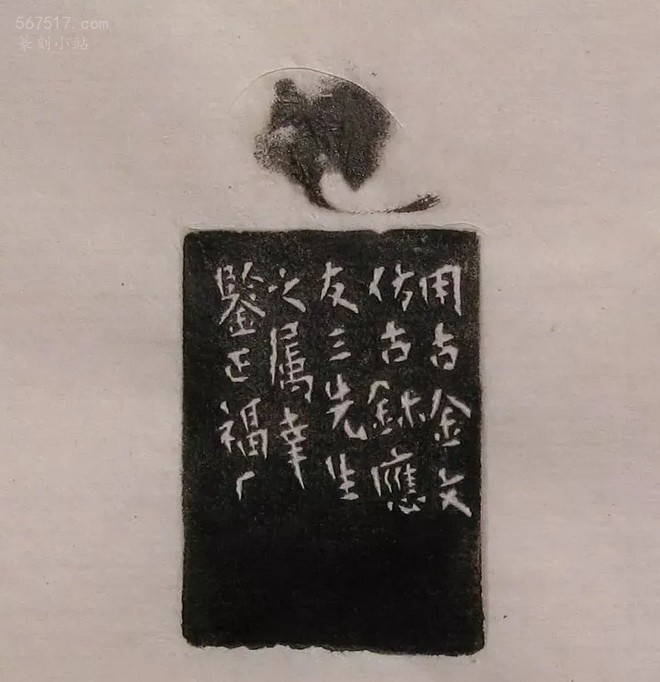 567517.com
篆刻小站
用古金文
仿古鉥應
友三先生
之属幸
鑒正福厂